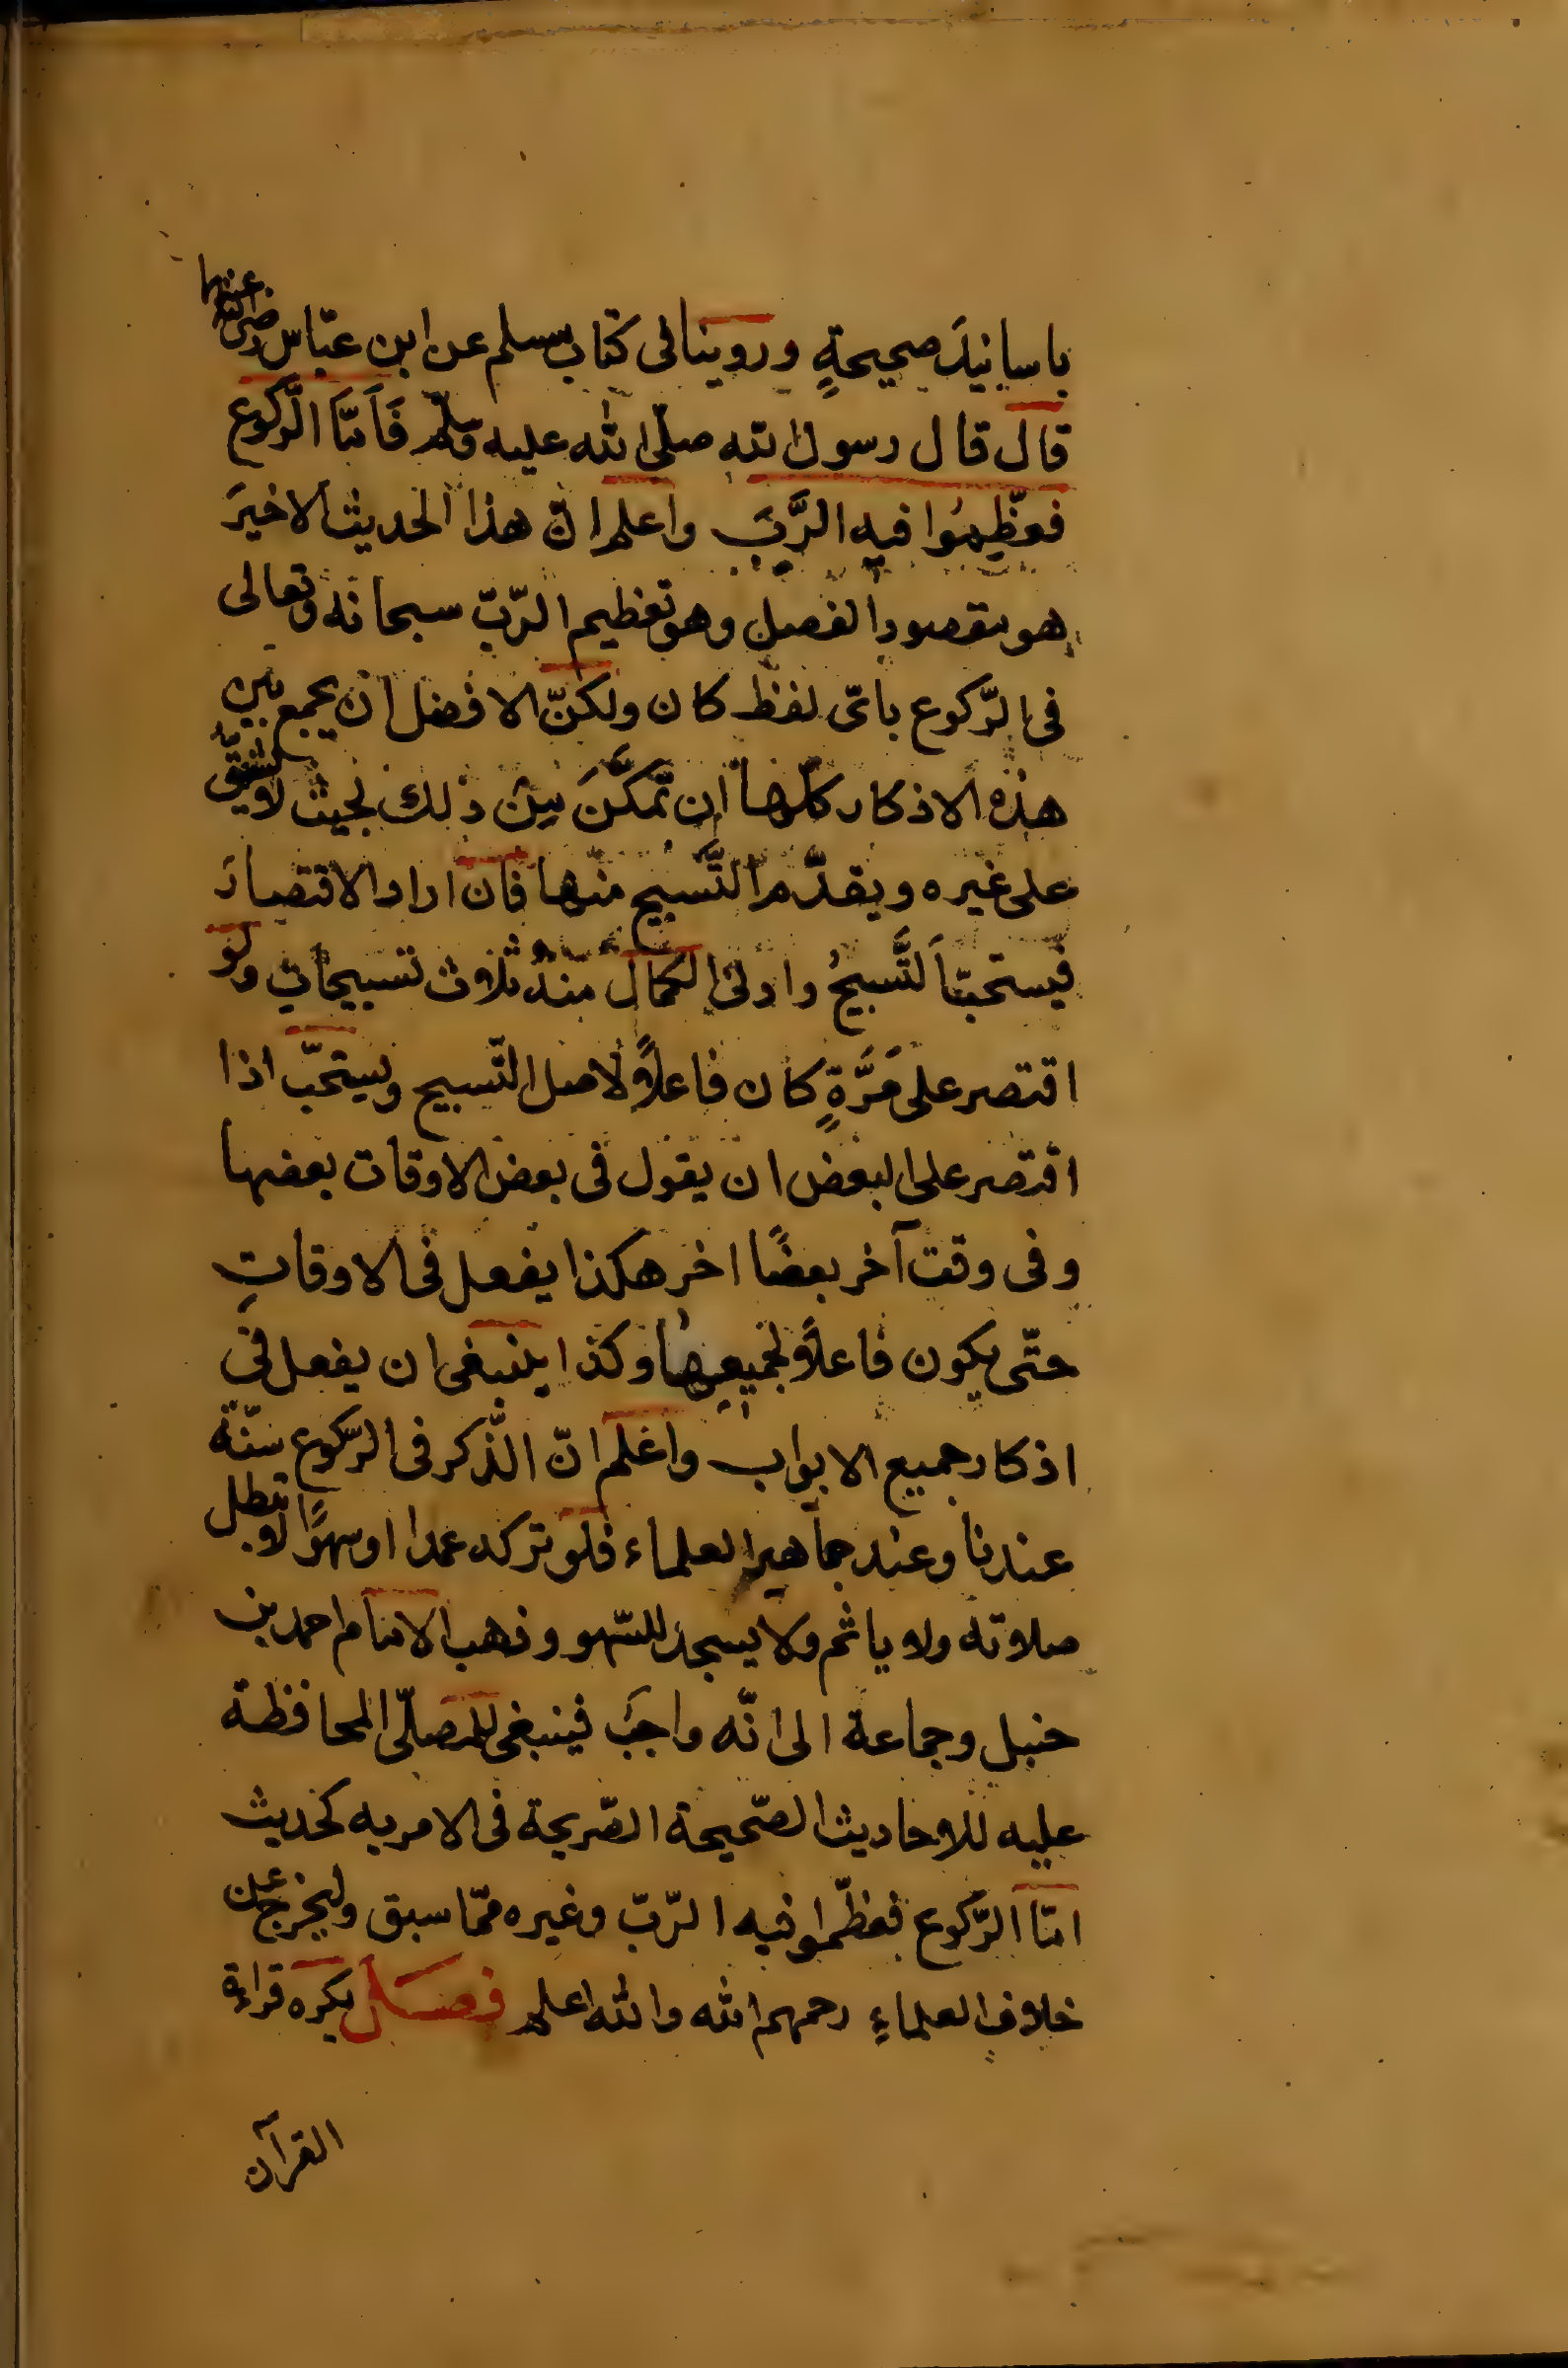 باسانيدَ صحيحةٍ وروينا فى كتاب مسلم عن ابن عبّاس رضى الله عنهما
قال قال رسول الله صلّى الله عليه وسلّم فَاَمَّا الرَّكوع
فعظِّمُوا فيه الرَّبَّ واعلم انّ هذا الحديث الاخيرَ
هو مقصود الفصل وهو تعظيم الرّبّ سبحانه وتعالى
فى الرّكوع باىّ لفظ كان ولكنّ الافضل ان يجمع بين
هذه الاذكار كلّها ان تمكَّنَ مِن ذلك بحيث لا يشقّ
على غيره ويقدّم التَّسبيح منها فان اراد الاقتصارَ
فيستحبّ اَلتَّسبيحُ وادنى الكمال منه ثلاث تسبيحاتٍ ولو
اقتصر على مَرَّةٍ كان فاعلاً لاصل التّسبيح ويستحبّ اذا
اقتصر على البعض ان يقول فى بعض الاوقات بعضها
وفى وقت آخر بعضًا اخر هكذا يفعل فى الاوقاتِ
حتّى يكون فاعلاً لجميعِها وكذا ينبغى ان يفعل فى
اذكار جميع الابواب واعلم انّ الذّكر فى الرّكوع سنّة
عندنا وعند جماهير العلماء فلو تركه عمدا اوسهوًا لا تبطل
صلاته ولا ياثم ولا يسجد للسّهو وذهب الامام احمد بن
حنبل وجماعة الى انّه واجبٌ فينبغى للمصلّى المحافظة
عليه للاحاديث الصّحيحة الصّريحة فى الامر به كحديث
امّا الرّكوع فعظّموا فيه الرّبّ وغيره ممّا سبق وليخرج عن
خلاف العلماءِ رحمهم الله والله اعلم فصل يكره قراءة
القرآن